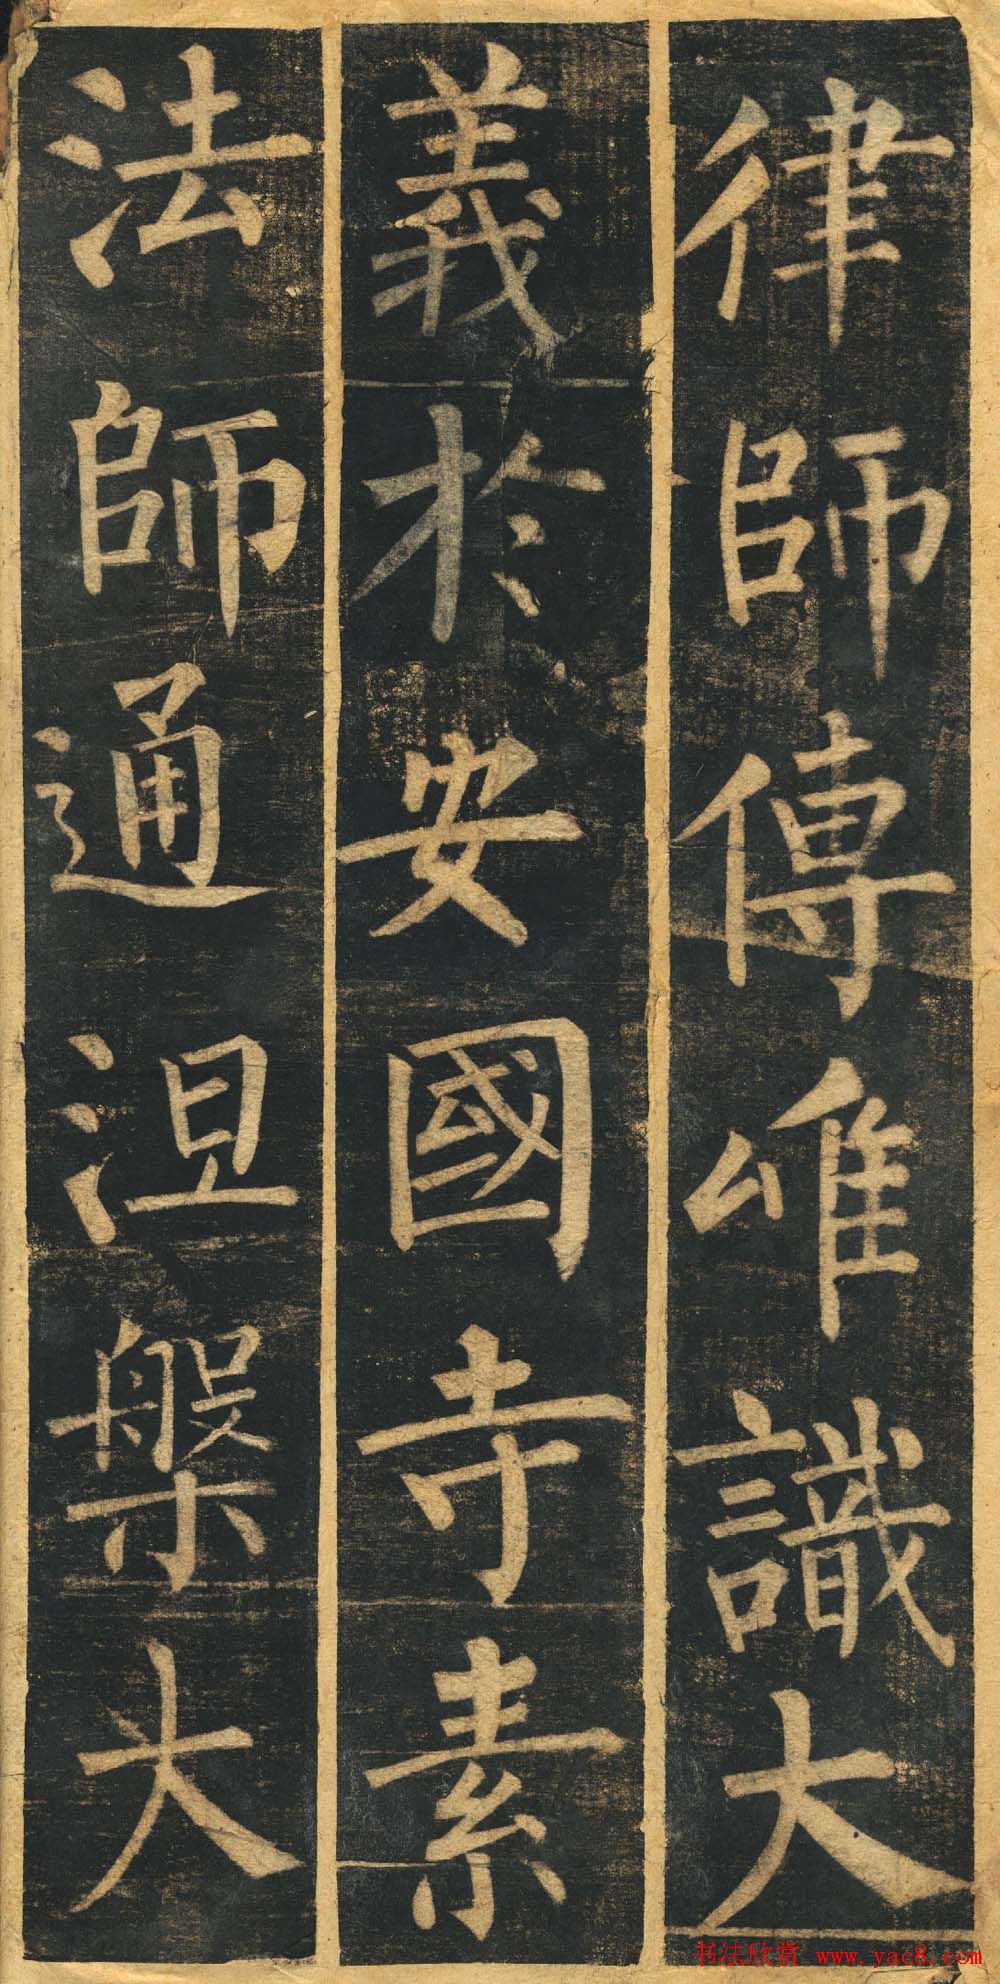 律師傳唯識大
義於安國寺素
法師通涅槃大
书法欣赏 www.yac8.com